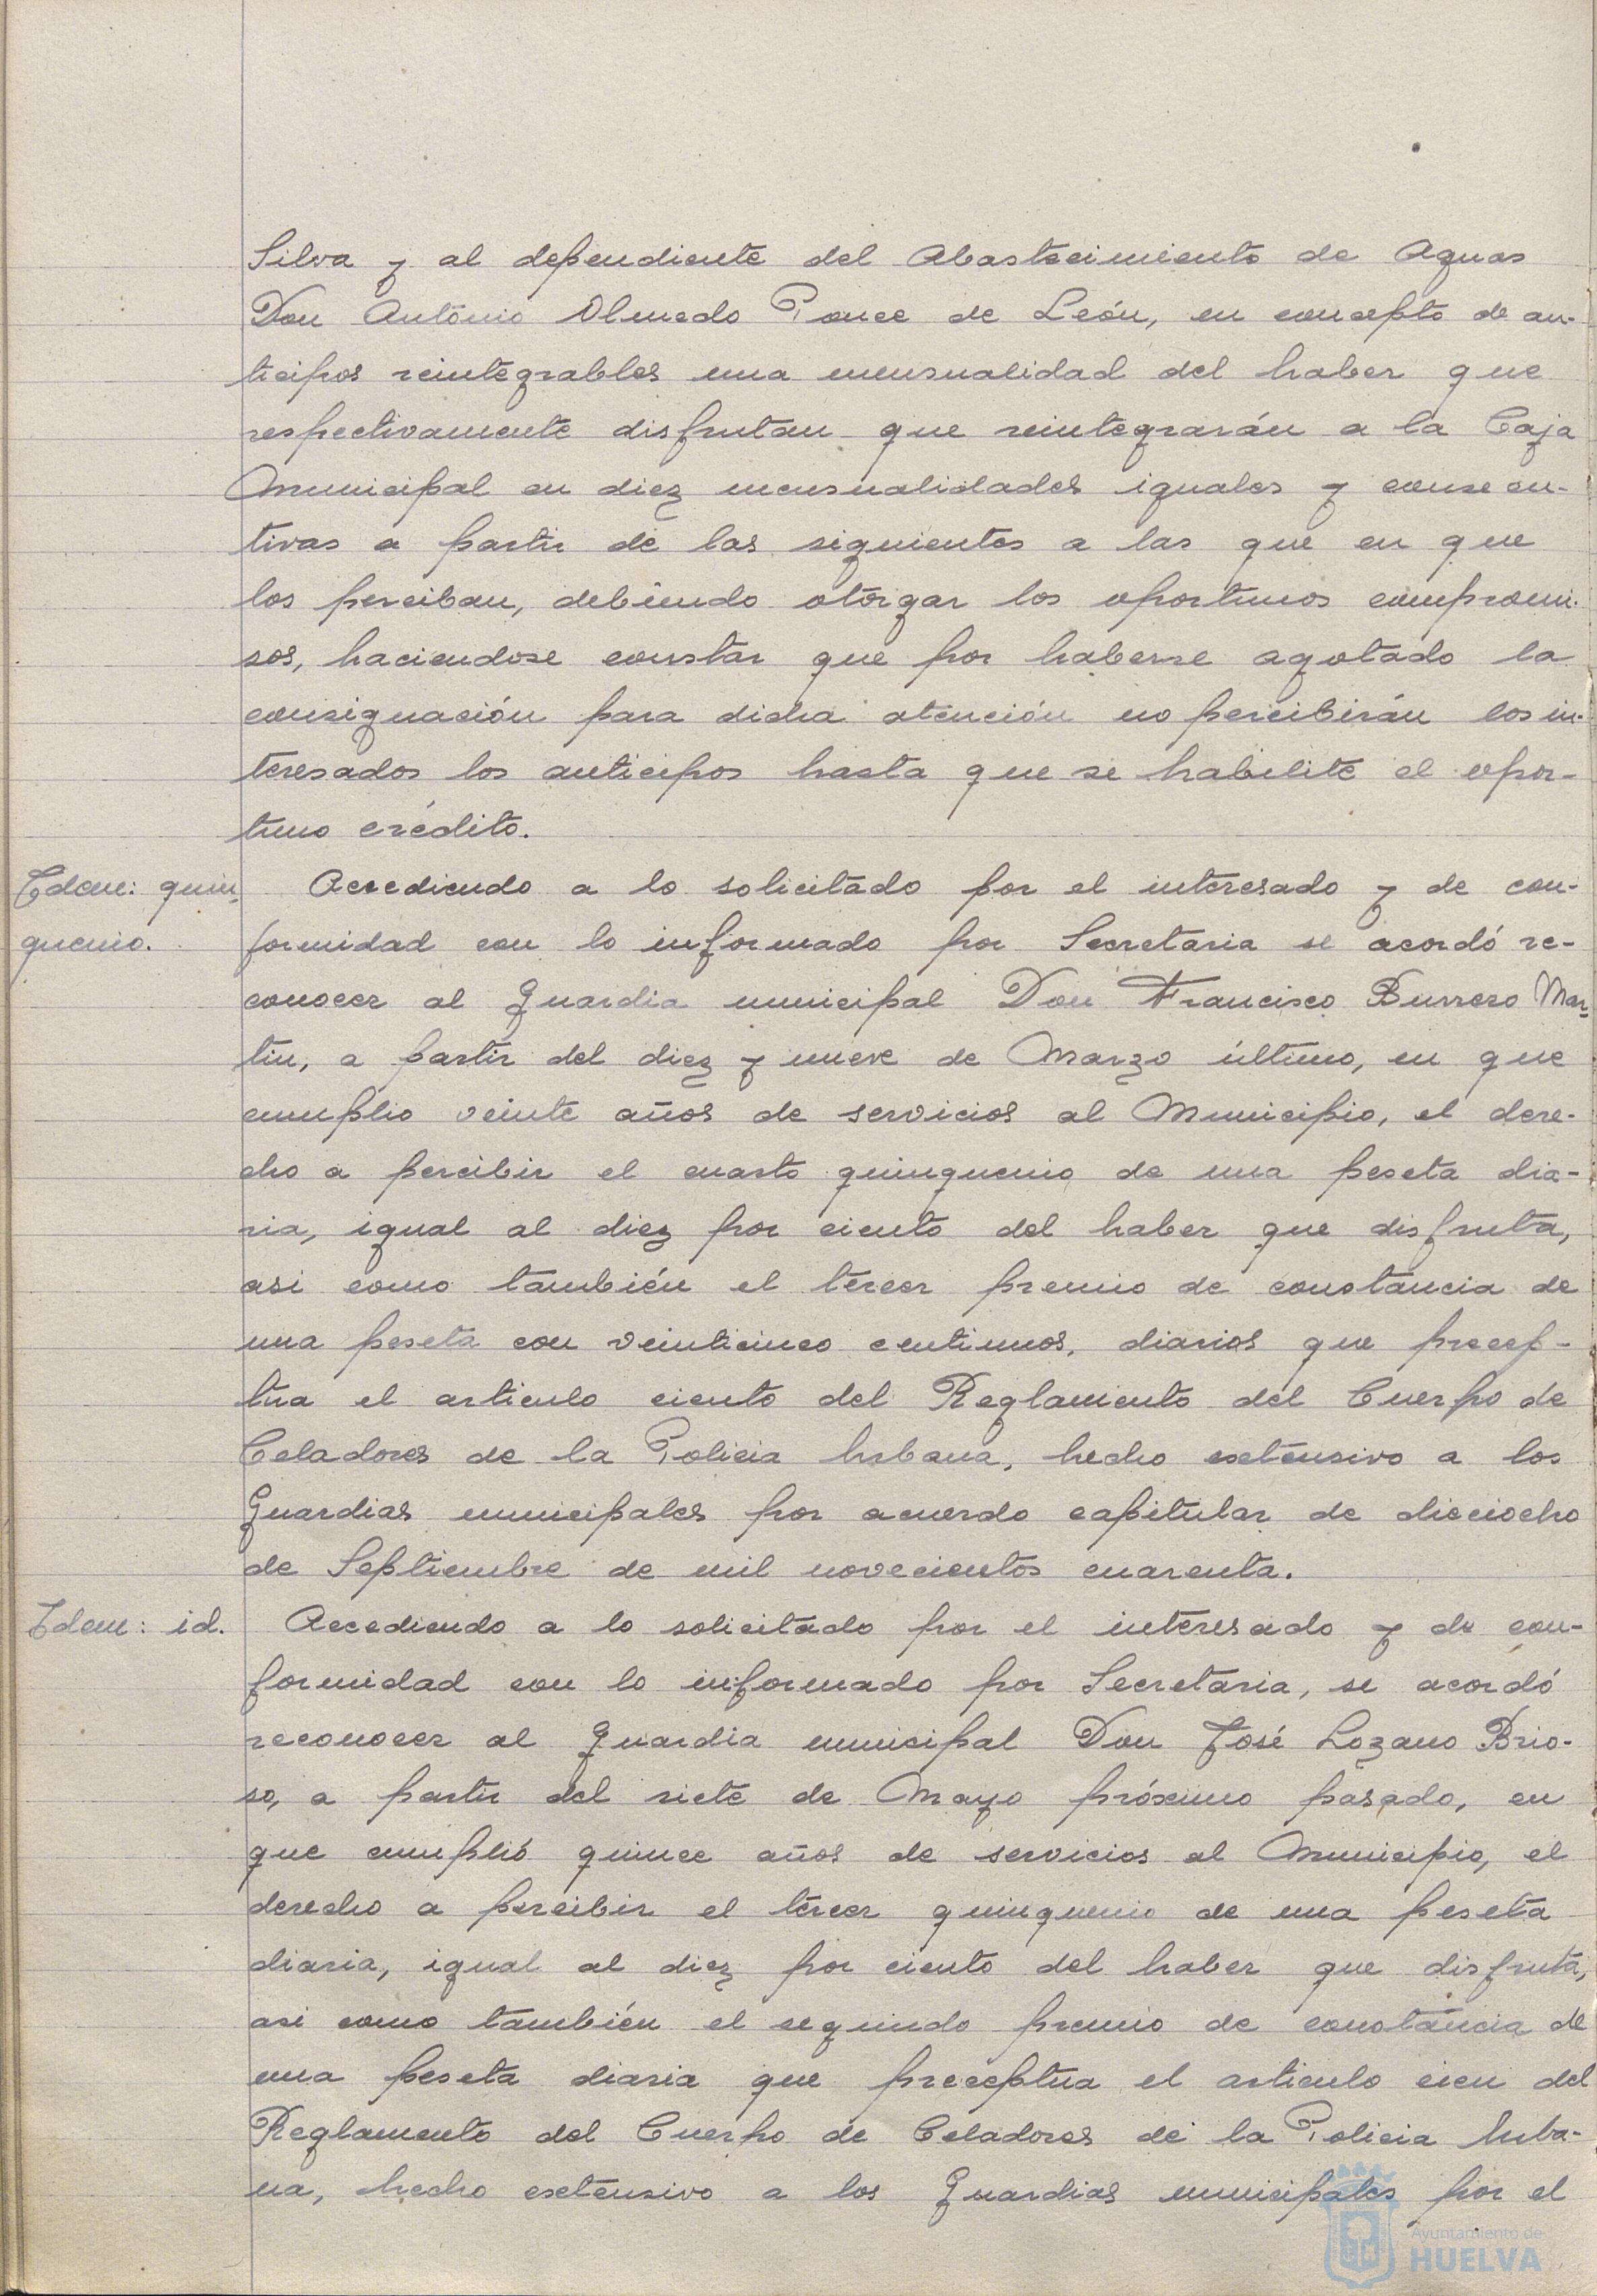 Silva y al dependiente del Abastecimiento de Aguas
Don Antonio Olmedo Ponce de León, en concepto de an-
ticipos reintegrables una mensualidad del haber que
respectivamente disfrutan que reintegrarán a la Caja
Municipal en diez mensualidades iguales y consecu-
tivas a partir de las siguientes a las que en que
los perciban, debiendo otorgar los oportunos compromi-
sos, haciendose constar que por haberse agotado la
consignación para dicha atención no percibirán los in-
teresados los anticipos hasta que se habilite el opor-
tuno crédito.
Idem: quin
quenio.
Accediendo a lo solicitado por el interesado y de con-
formidad con lo informado por Secretaria se acordó re-
conocer al Guardia municipal Don Francisco Burrero Mar-
tin, a partir del diez y nueve de Marzo último, en que
cumplio veinte años de servicios al Municipio, el dere-
cho a percibir el cuarto quinquenio de una peseta dia-
ria, igual al diez por ciento del haber que disfruta,
asi como también el tercer premio de constancia de
una peseta con veinticinco centimos, diarios que precep-
tua el articulo ciento del Reglamento del Cuerpo de
Celadores de la Policia Urbana, hecho extensivo a los
Guardias municipales por acuerdo capitular de dieciocho
de Septiembre de mil novecientos cuarenta.
Idem: id.
Accediendo a lo solicitado por el interesado y de con-
formidad con lo informado por Secretaria, se acordó
reconocer al Guardia municipal Don José Lozano Brio-
so, a partir del siete de Mayo próximo pasado, en
que cumplió quince años de servicios al Municipio, el
derecho a percibir el tercer quinquenio de una peseta
diaria, igual al diez por ciento del haber que disfruta,
asi como también el segundo premio de constancia de
una peseta diaria que preceptua el articulo cien del
Reglamento del Cuerpo de Celadores de la Policia Urba-
na, hecho extensivo a los Guardias municipales por el
Ayuntamiento de
HUELVA